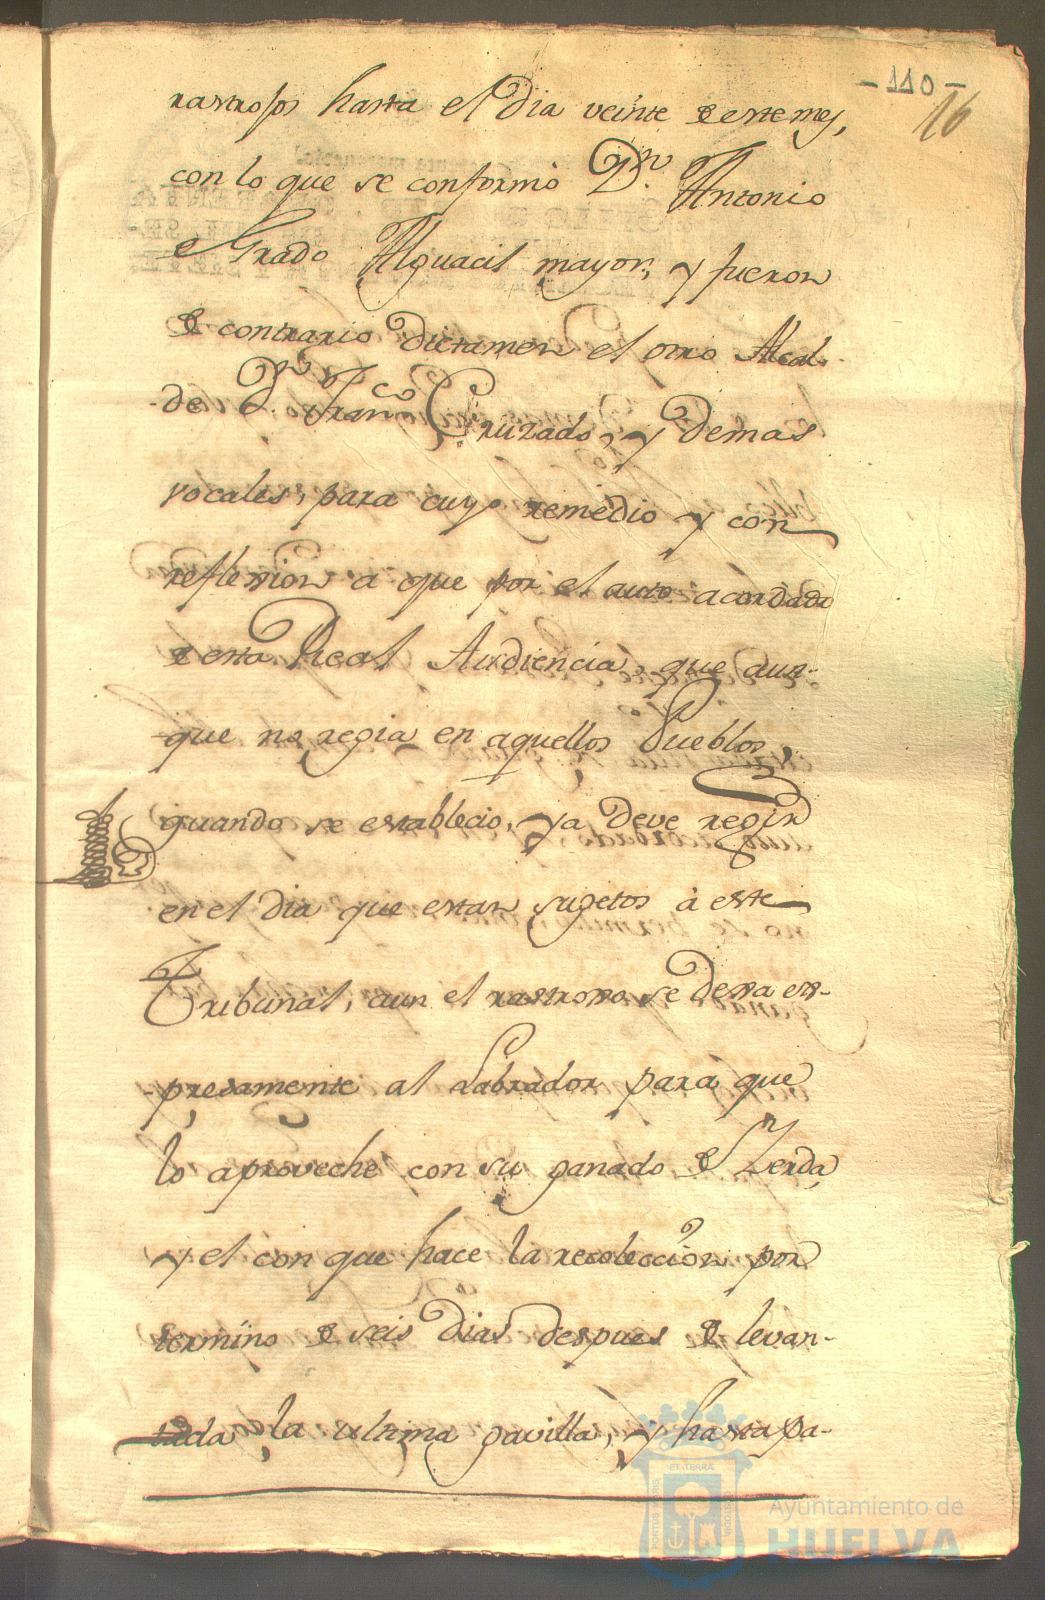 -110-
16
rastrojos hasta el dia veinte de este mes,
con lo que se conformó Dn. Antonio
de Grado Alguacil mayor, y fueron
de contrario dictamen el otro Alcal-
de Dn. Franco Cruzado, y demas
vocales, para cuyo remedio y con
reflexion a que por el auto acordado
de esta Real Audiencia, que aun-
que no regia en aquellos Pueblos,
quando se establecio, ya deve regir
en el dia que estan sugetos à este
Tribunal, aun el rastrojo se dexa ex-
presamente al Labrador para que
lo aproveche con su ganado de Zerda,
y el con que hace la recoleccion por
termino de seis dias despues de levan-
tada la ultima gavilla, y hasta pa-
ET TERRAE
Ayuntamiento de
HUELVA